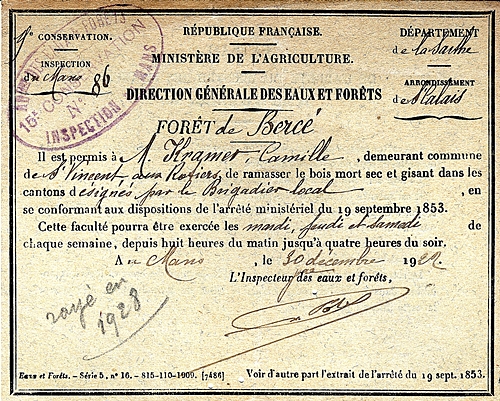 RÉPUBLIQUE FRANÇAISE.
CONSERVATION.
DÉPARTEMENT
de la Sarthe
INSPECTION
du Mans
N° 86
MINISTÈRE DE L'AGRICULTURE.
ARRONDISSEMENT
de St Calais
15e CONSERVATION
INSPECTION
MANS
DIRECTION GÉNÉRALE DES EAUX ET FORÊTS
FORÊT de Bercé
Il est permis à M. Kramer, Camille, demeurant commune
de St Vincent aux de ramasser le bois mort sec et gisant dans les
cantons désignés par le Brigadier local, en
se conformant aux dispositions de l'arrêté ministériel du 19 septembre 1853.
Cette faculté pourra être exercée les mardi, jeudi et samedi de
chaque semaine, depuis huit heures du matin jusqu'à quatre heures du soir.
A u Mans, le 30 décembre 192
L'Inspecteur des eaux et forêts,
rayé en
1928
Eaux et Forêts. — Série 5, n° 16. — 815-110-1909. [7486]
Voir d'autre part l'extrait de l'arrêté du 19 sept. 1853.